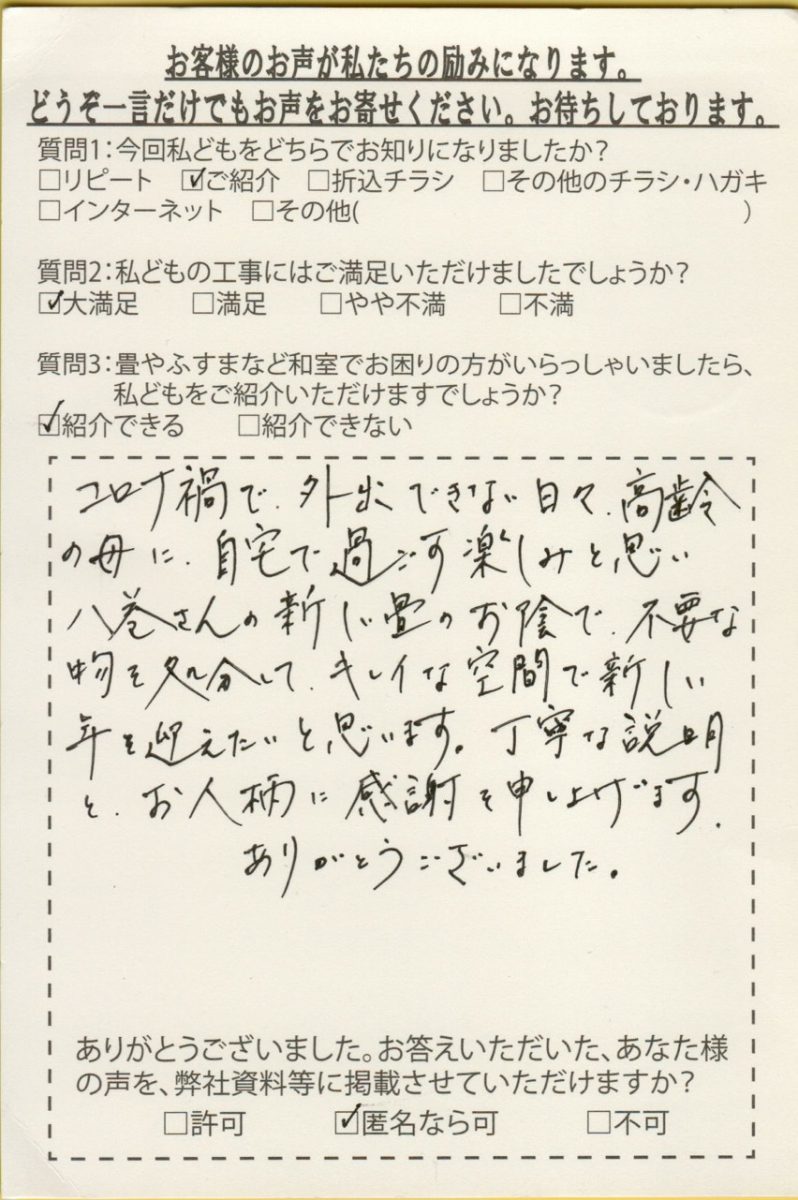 お客様のお声が私たちの励みになります。
どうぞ一言だけでもお声をお寄せください。お待ちしております。
質問1:今回私どもをどちらでお知りになりましたか?
□リピート ☑ご紹介 □折込チラシ □その他のチラシ・ハガキ
□インターネット □その他( )
質問2:私どもの工事にはご満足いただけましたでしょうか?
☑大満足 □満足 □やや不満 □不満
質問3:畳やふすまなど和室でお困りの方がいらっしゃいましたら、
私どもをご紹介いただけますでしょうか?
☑紹介できる □紹介できない
コロナ禍で、外出できない日々、高齢
の母に、自宅で過ごす楽しみと思い
八巻さんの新しい畳のお陰で、不要な
物を処分して、キレイな空間で新しい
年を迎えたいと思います。丁寧な説明
と、お人柄に感謝を申し上げます。
ありがとうございました。
ありがとうございました。お答えいただいた、あなた様
の声を、弊社資料等に掲載させていただけますか?
□許可 ☑匿名なら可 □不可